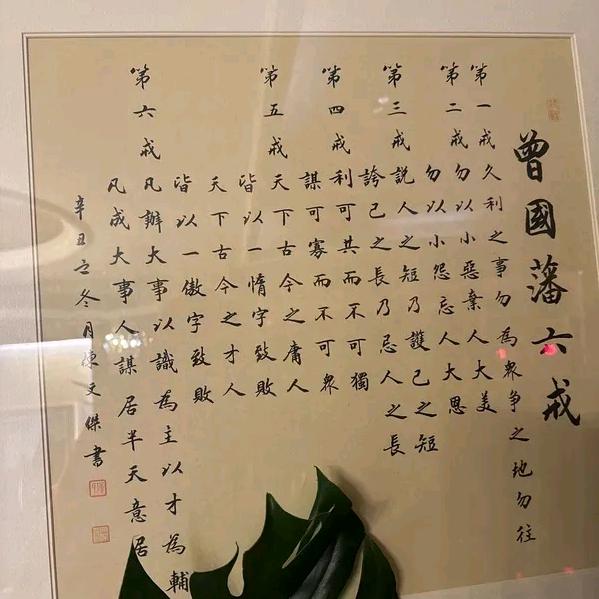 曾國藩六戒
第一戒久利之事勿為衆爭之地勿往
第二戒勿以小惡棄人大美
勿以小怨忘人大恩
第三戒說人之短乃護己之短
誇己之長乃忌人之長
第四戒利可共而不可獨
謀可寡而不可衆
第五戒天下古今之庸人
皆以一惰字致敗
天下古今之才人
皆以一傲字致敗
第六戒凡辦大事以識為主以才為輔
凡成大事人謀居半天意居
辛丑之冬月陳文傑書